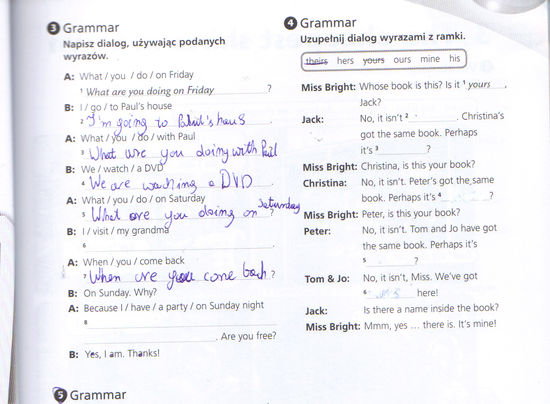 3 Grammar
Napisz dialog, używając podanych
wyrazów.
A: What / you / do / on Friday
1 What are you doing on Friday ?
B: I / go / to Paul's house
2 I'm going to Paul's haus .
A: What / you / do / with Paul
3 What are you doing with Paul
B: We / watch / a DVD
4 We are watching a DVD .
A: What / you / do / on Saturday
5 What are you doing on Saturday
B: I / visit / my grandma
6 .
A: When / you / come back
7 When are you come back ?
B: On Sunday. Why?
A: Because I / have / a party / on Sunday night
8
. Are you free?
B: Yes, I am. Thanks!
5 Grammar
4 Grammar
Uzupełnij dialog wyrazami z ramki.
theirs hers yours ours mine his
Miss Bright: Whose book is this? Is it 1 yours ,
Jack?
Jack: No, it isn't 2 . Christina's
got the same book. Perhaps
it's 3 ?
Miss Bright: Christina, is this your book?
Christina: No, it isn't. Peter's got the same
book. Perhaps it's 4 ?
Miss Bright: Peter, is this your book?
Peter: No, it isn't. Tom and Jo have got
the same book. Perhaps it's
5 ?
Tom & Jo: No, it isn't, Miss. We've got
6 here!
Jack: Is there a name inside the book?
Miss Bright: Mmm, yes ... there is. It's mine!